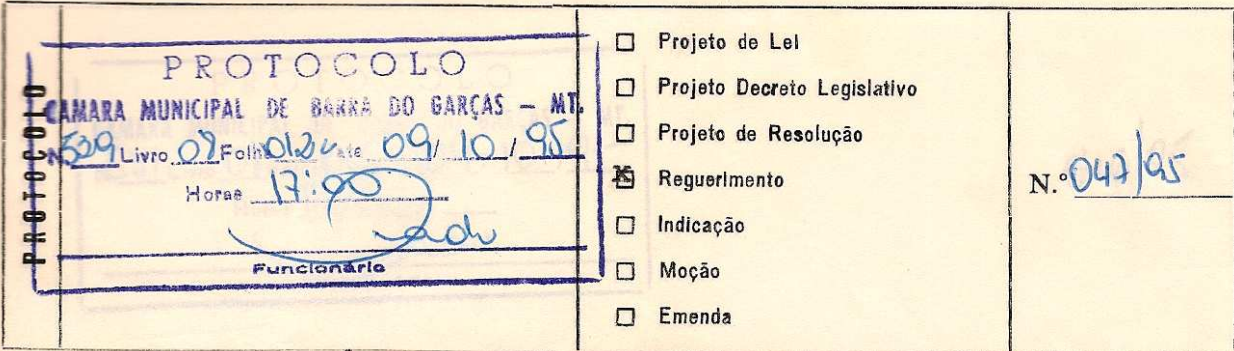 PROTOCOLO
PROTOCOLO
CAMARA MUNICIPAL DE BARRA DO GARÇAS — MT.
N.º 539 Livro 08 Folha ate 09/10/95
Horas 17:00
Funcionário
☐ Projeto de Lei
☐ Projeto Decreto Legislativo
☐ Projeto de Resolução
☒ Reguerimento
☐ Indicação
☐ Moção
☐ Emenda
N.º 047/95